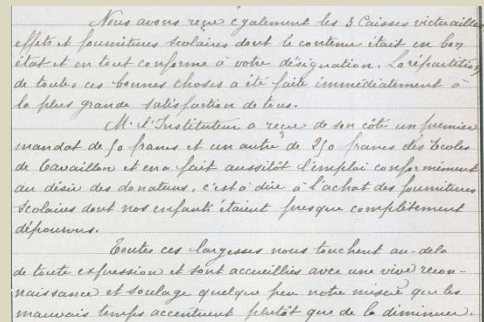 Nous avons reçu également les 3 Caisses victuailles
effets et fournitures scolaires dont le contenu était en bon
état et en tout conforme à votre désignation. La répartition
de toutes ces bonnes choses a été faite immédiatement à
la plus grande satisfaction de tous.
M. l'Instituteur a reçu de son côté un premier
mandat de 50 francs et un autre de 250 francs des Ecoles
de Cavaillon et en a fait aussitôt l'emploi conformément
au désir des donateurs, c'est à dire à l'achat des fournitures
scolaires dont nos enfants étaient presque complètement
dépourvus.
Toutes ces largesses nous touchent au-delà
de toute expression et sont accueillies avec une vive recon-
naissance et soulage quelque peu notre misère que les
mauvais temps accentuent plutôt que de la diminuer.